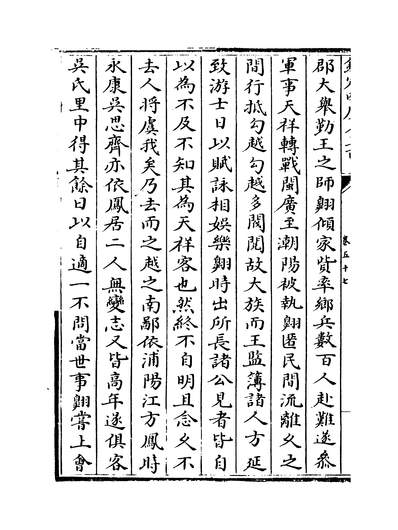 卷五十七
郡大舉勤王之師翺傾家貲率鄉兵數百人赴難遂叅
軍事天祥轉戰閩廣至潮陽被執翺匿民間流離久之
間行抵勾越勾越多閥閲故大族而王監簿諸人方延
致游士日以賦詠相娛樂翺時出所長諸公見者皆自
以為不及不知其為天祥客也然終不自明且念久不
去人將虞我矣乃去而之越之南鄙依浦陽江方鳳時
永康吳思齊亦依鳳居二人無變志又皆高年遂俱客
吳氏里中得其餘日以自適一不問當世事翺嘗上會